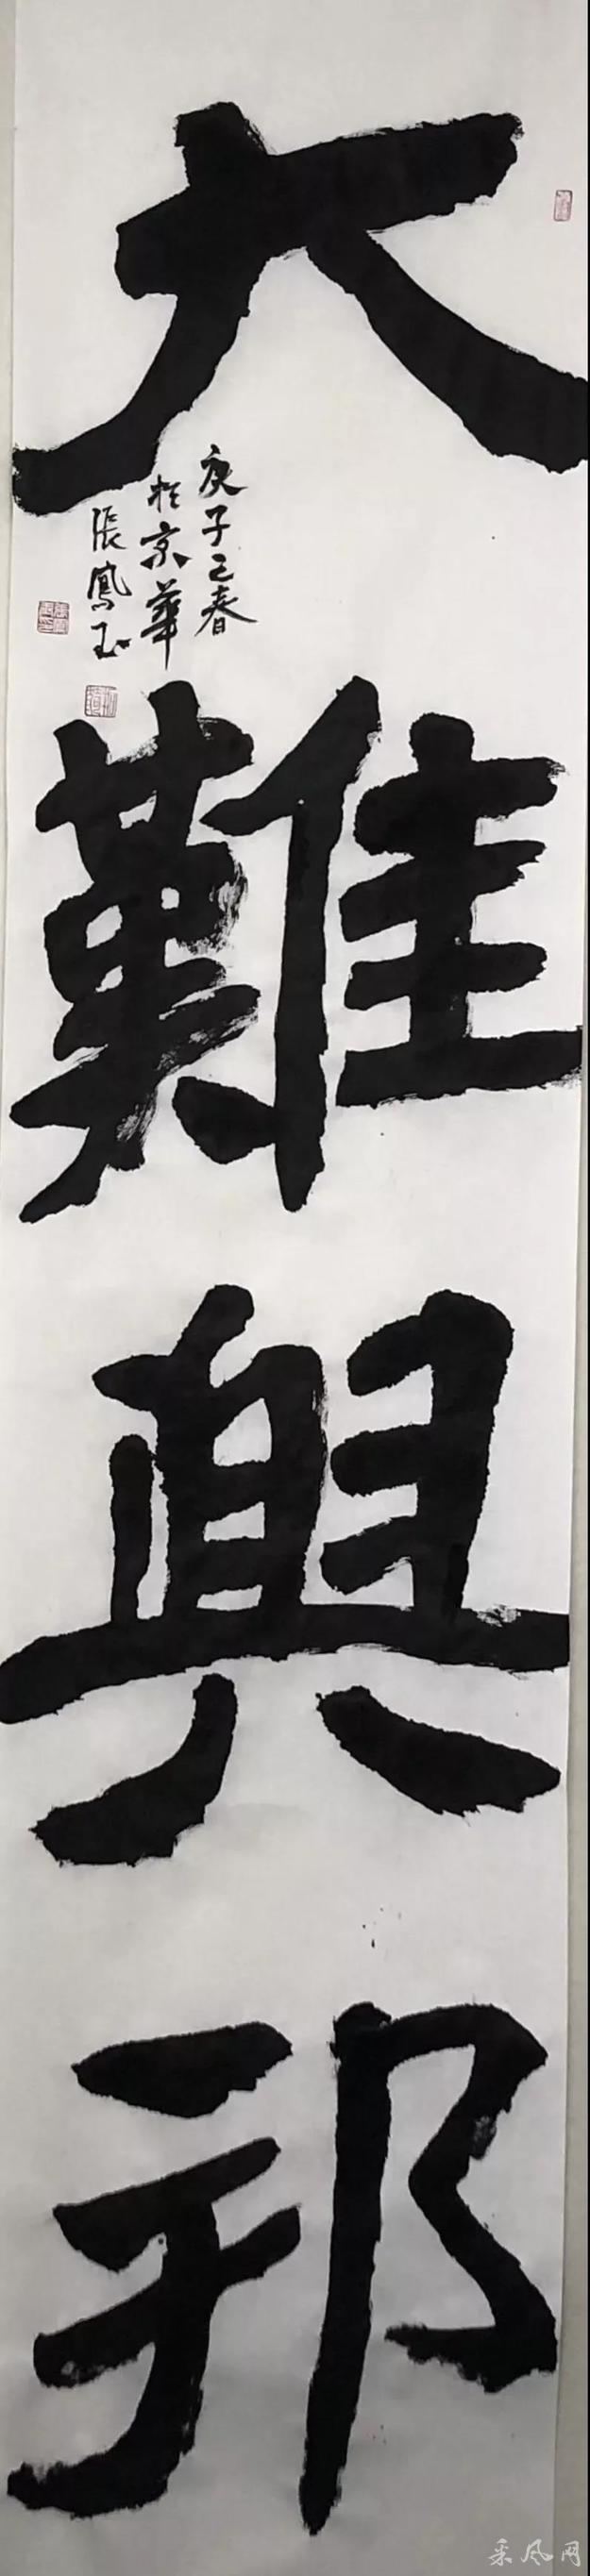 大難興邦
庚子之春
於京華
張鳳玉
采风网